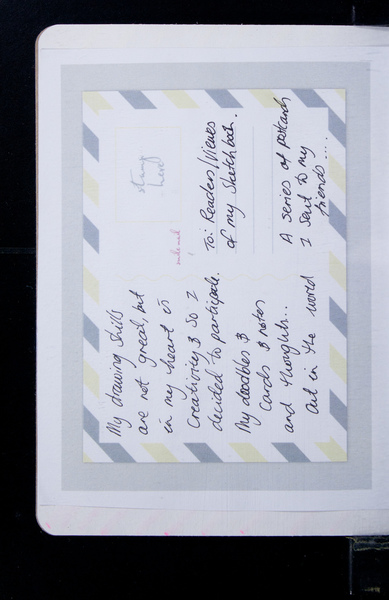 My drawing skills
are not great, but
in my heart is
Creativity & so I
decided to participate.
My doodles &
Cards & notes
and thoughts...
Out in the world
stamp
here
To: Readers/Views
of my Sketchbook.
A series of postcards
I sent to my
friends....